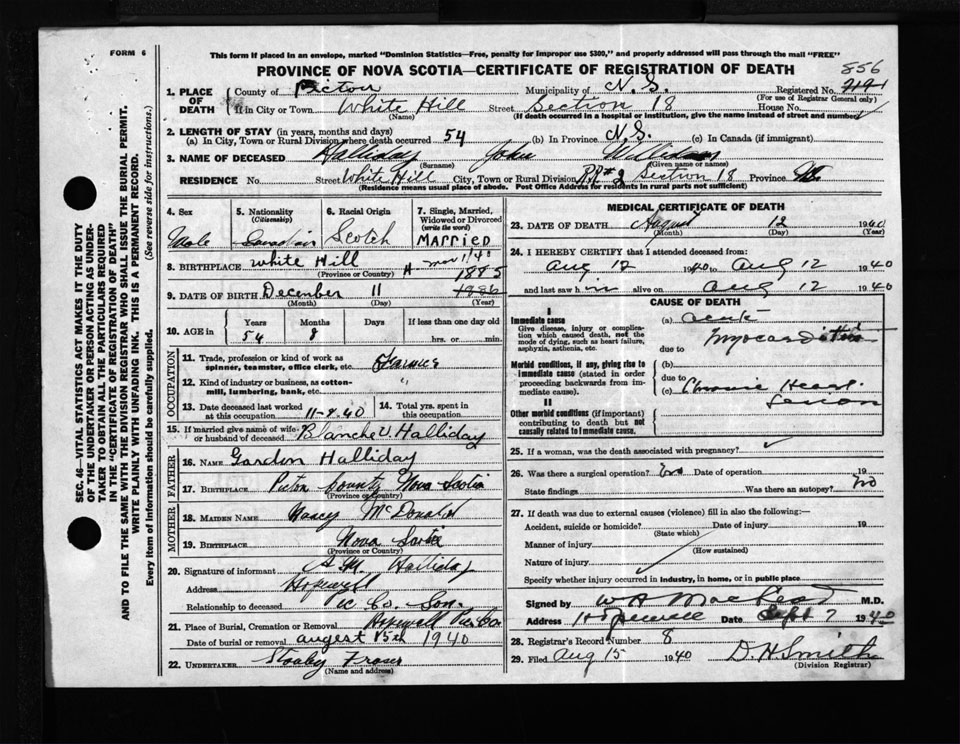 FORM 6
This form if placed in an envelope, marked "Dominion Statistics—Free, penalty for improper use $300," and properly addressed will pass through the mail "FREE"
PROVINCE OF NOVA SCOTIA—CERTIFICATE OF REGISTRATION OF DEATH
856
1. PLACE OF DEATH County of Pictou Municipality of N. S. Registered No.
(For use of Registrar General only)
If in City or Town White Hill Street Section 18 House No.
(Name) (If death occurred in a hospital or institution, give the name instead of street and number)
2. LENGTH OF STAY (in years, months and days)
(a) In City, Town or Rural Division where death occurred 54 (b) In Province N.S. (c) In Canada (if immigrant)
3. NAME OF DECEASED Halliday John William
(Surname) (Given name or names)
RESIDENCE No. Street White Hill City, Town or Rural Division RR#2 Section 18 Province
(Residence means usual place of abode. Post Office Address for residents in rural parts not sufficient)
4. Sex Male
5. Nationality (Citizenship) Canadian
6. Racial Origin Scotch
7. Single, Married, Widowed or Divorced (write the word) MARRIED
8. BIRTHPLACE White Hill
(Province or Country)
H Nov 1/40
1885
9. DATE OF BIRTH December 11 1986
(Month) (Day) (Year)
10. AGE in Years 54 Months 8 Days If less than one day old hrs. or min.
OCCUPATION
11. Trade, profession or kind of work as spinner, teamster, office clerk, etc. Farmer
12. Kind of industry or business, as cotton-mill, lumbering, bank, etc. "
13. Date deceased last worked at this occupation 11-8-40
14. Total yrs. spent in this occupation
15. If married give name of wife or husband of deceased Blanche V. Halliday
FATHER
16. NAME Gordon Halliday
17. BIRTHPLACE Pictou County Nova Scotia
(Province or Country)
MOTHER
18. MAIDEN NAME Nancy McDonald
19. BIRTHPLACE Nova Scotia
(Province or Country)
20. Signature of informant A M. Halliday
Address Hopewell
Relationship to deceased Son.
21. Place of Burial, Cremation or Removal Hopewell
Date of burial or removal augest 15th 1940
22. UNDERTAKER Fraser
(Name and address)
MEDICAL CERTIFICATE OF DEATH
23. DATE OF DEATH August 12 1940
(Month) (Day) (Year)
24. I HEREBY CERTIFY that I attended deceased from:
Aug 12 1940 to Aug 12 1940
and last saw h im alive on Aug 12 1940
CAUSE OF DEATH
I
Immediate cause (a) acute
Give disease, injury or complication which caused death, not the mode of dying, such as heart failure, asphyxia, asthenia, etc.
Myocarditis
due to
Morbid conditions, if any, giving rise to immediate cause (stated in order proceeding backwards from immediate cause).
(b)
due to
(c) Chronic Heart
Lesion
II
Other morbid conditions (if important) contributing to death but not causally related to immediate cause.
25. If a woman, was the death associated with pregnancy?
26. Was there a surgical operation? No Date of operation 19
State findings Was there an autopsy? No
27. If death was due to external causes (violence) fill in also the following:—
Accident, suicide or homicide? Date of injury 19
(State which)
Manner of injury
(How sustained)
Nature of injury
Specify whether injury occurred in industry, in home, or in public place
Signed by M.D.
Address Hopewell Date Sept 7 1940
28. Registrar's Record Number 8
29. Filed Aug 15 1940 D. H Smith
(Division Registrar)
SEC. 46—VITAL STATISTICS ACT MAKES IT THE DUTY
OF THE UNDERTAKER OR PERSON ACTING AS UNDER-
TAKER TO OBTAIN ALL THE PARTICULARS REQUIRED
IN THE "CERTIFICATE OF REGISTRATION OF DEATH"
AND TO FILE THE SAME WITH THE DIVISION REGISTRAR WHO SHALL ISSUE THE BURIAL PERMIT.
WRITE PLAINLY WITH UNFADING INK. THIS IS A PERMANENT RECORD.
Every item of information should be carefully supplied. (See reverse side for instructions.)